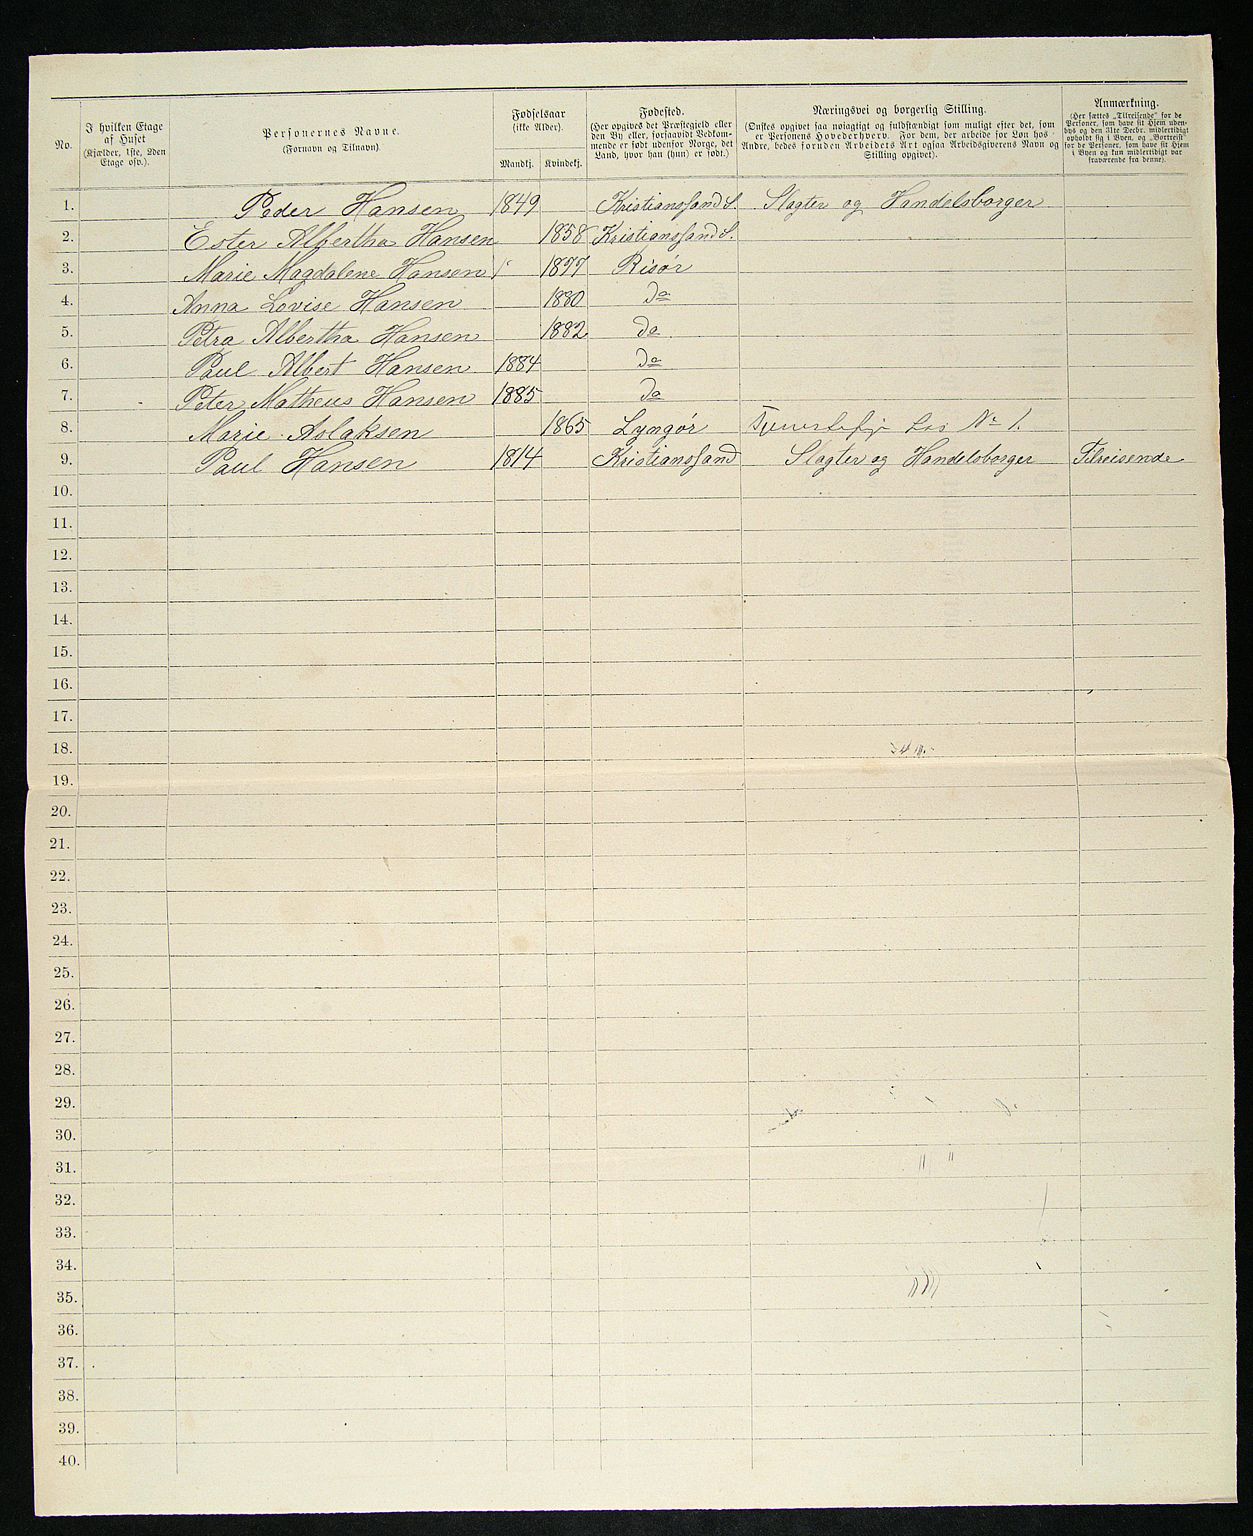 No.
I hvilken Etage
af Huset
(Kjælder, 1ste, 2den
Etage osv.).
Personernes Navne.
(Fornavn og Tilnavn).
Fødselsaar
(ikke Alder).
Mandkj. Kvindekj.
Fødested.
(Her opgives det Præstegjeld eller
den By eller, forsaavidt Vedkom-
mende er født udenfor Norge, det
Land, hvor han (hun) er født.)
Næringsvei og borgerlig Stilling.
(Ønskes opgivet saa nøiagtigt og fuldstændigt som muligt efter det, som
er Personens Hovederhverv. For dem, der arbeide for Løn hos
Andre, bedes foruden Arbeidets Art ogsaa Arbeidsgiverens Navn og
Stilling opgivet).
Anmærkning.
(Her sættes „Tilreisende“ for de
Personer, som have sit Hjem uden-
bys og den 31te Decbr. midlertidigt
opholdt sig i Byen, og „Bortreist“
for de Personer, som have sit Hjem
i Byen og kun midlertidigt var
fraværende fra denne).
1. Peder Hansen 1849 Kristianssand S. Slagter og Handelsborger
2. Ester Albertha Hansen 1858 Kristianssand S.
3. Marie Magdalene Hansen 1877 Risør
4. Anna Lovise Hansen 1880 do
5. Petra Albertha Hansen 1882 do
6. Paul Albert Hansen 1884 do
7. Peter Matheus Hansen 1885 do
8. Marie Aslaksen 1865 Lyngør No 1.
9. Paul Hansen 1814 Kristianssand Slagter og Handelsborger Tilreisende
10.
11.
12.
13.
14.
15.
16.
17.
18.
19.
20.
21.
22.
23.
24.
25.
26.
27.
28.
29.
30.
31.
32.
33.
34.
35.
36.
37.
38.
39.
40.